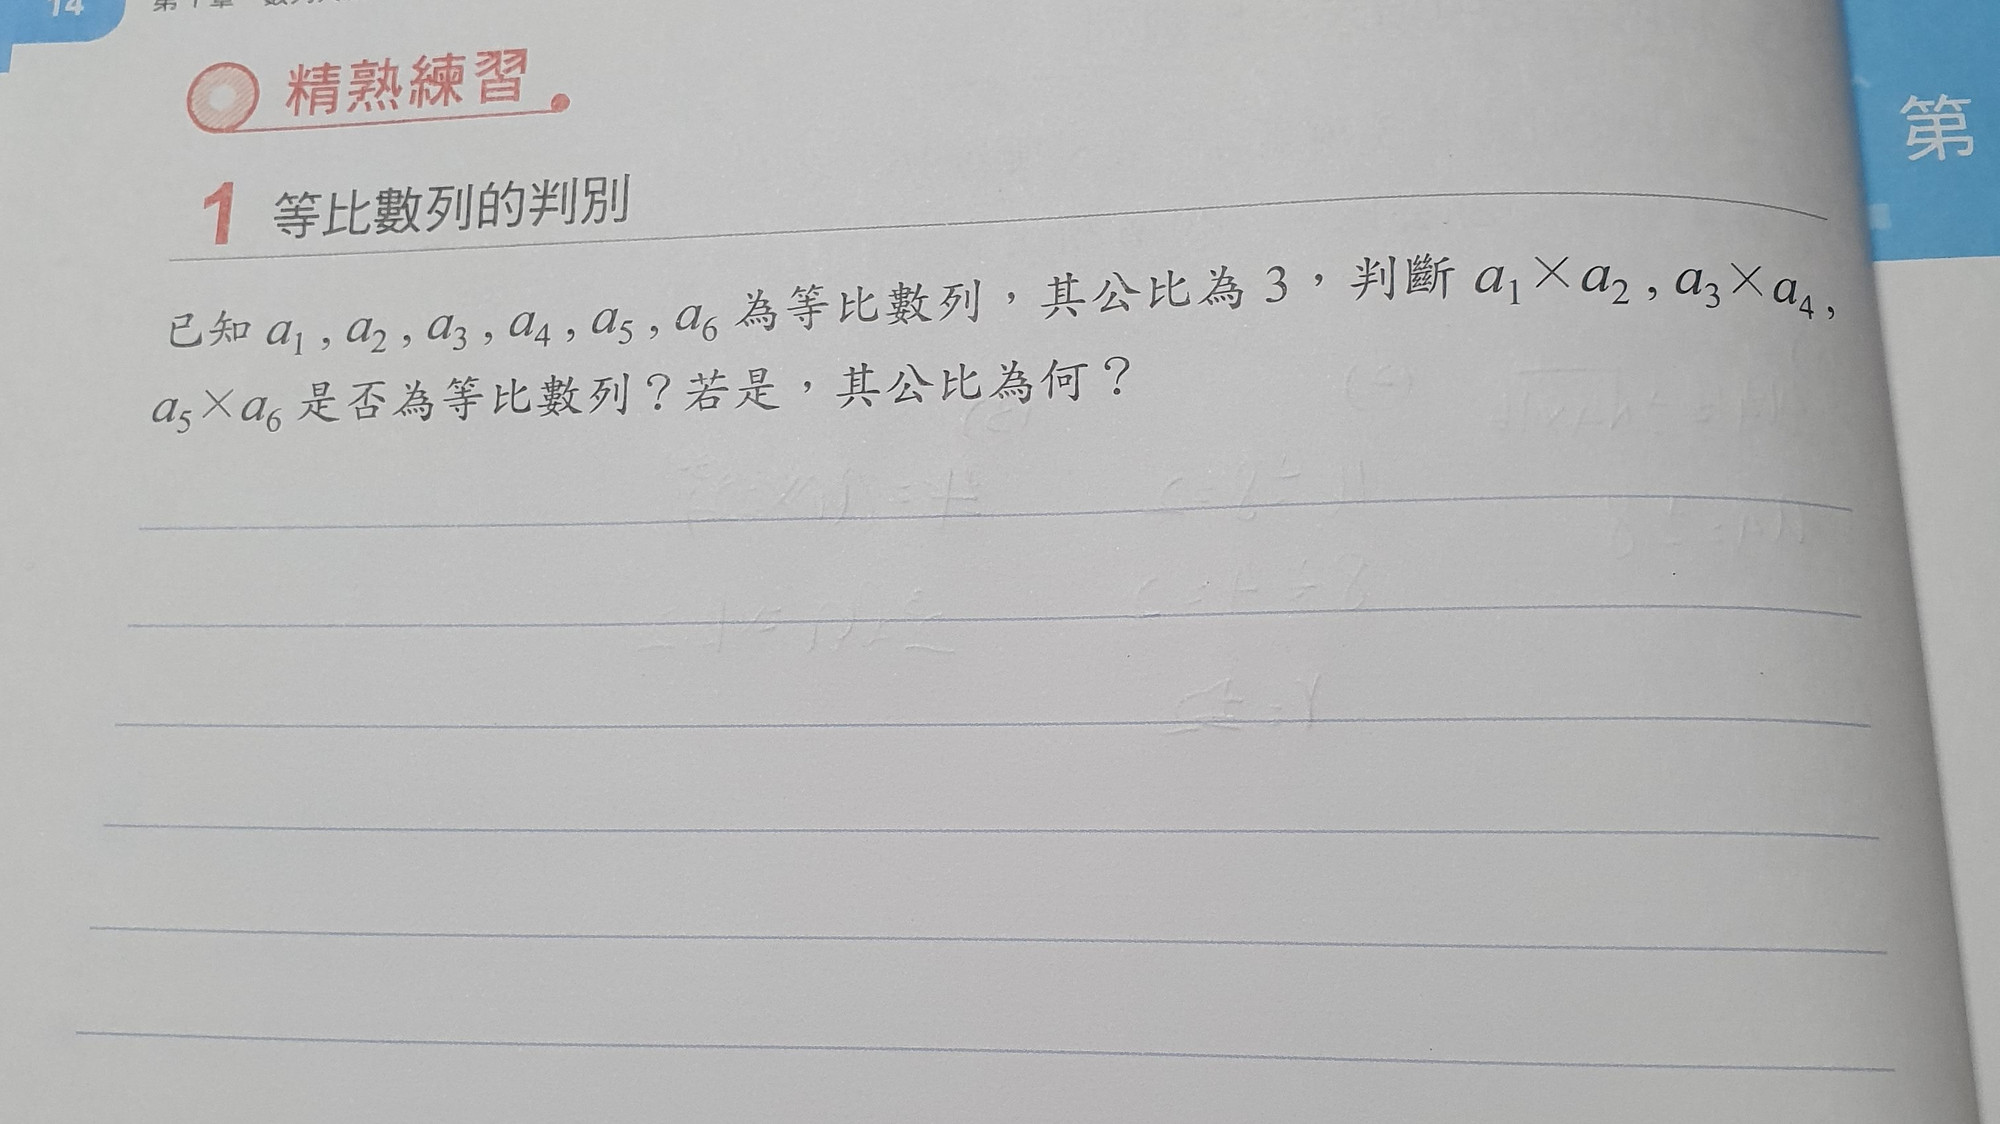 14
精熟練習
1 等比數列的判別
已知 a₁ , a₂ , a₃ , a₄ , a₅ , a₆ 為等比數列，其公比為 3，判斷 a₁×a₂ , a₃×a₄ ,
a₅×a₆ 是否為等比數列？若是，其公比為何？
第